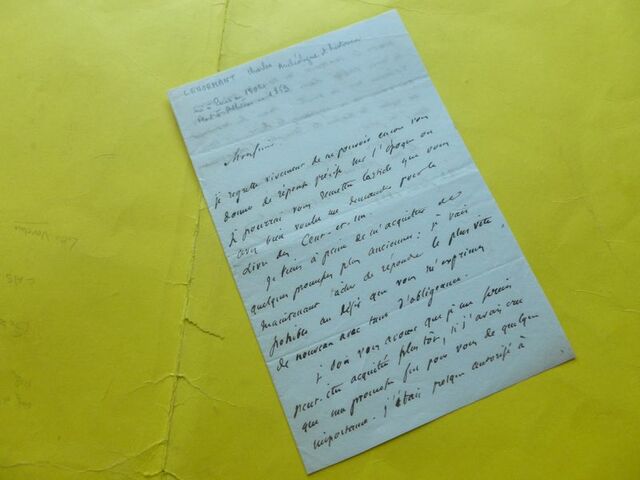 LENORMANT Charles Archéologue et historien
né à Paris en 1802
Mort à Athènes en 1859
Monsieur
je regrette vivement de ne pouvoir encore vous
donner de réponse précise sur l'époque où
je pourrai vous remettre l'article que vous
avez bien voulu me demander pour le
Livre des Cent-et-un.
Je viens à peine de m'acquitter de
quelques promesses plus anciennes : je vais
maintenant tâcher de répondre le plus vite
possible au désir que vous m'exprimez
de nouveau avec tant d'obligeance.
Je dois vous avouer que je me serais
peut-être acquitté plus tôt, si j'avais cru
que ma promesse fut pour vous de quelque
importance. J'étais presque autorisé à